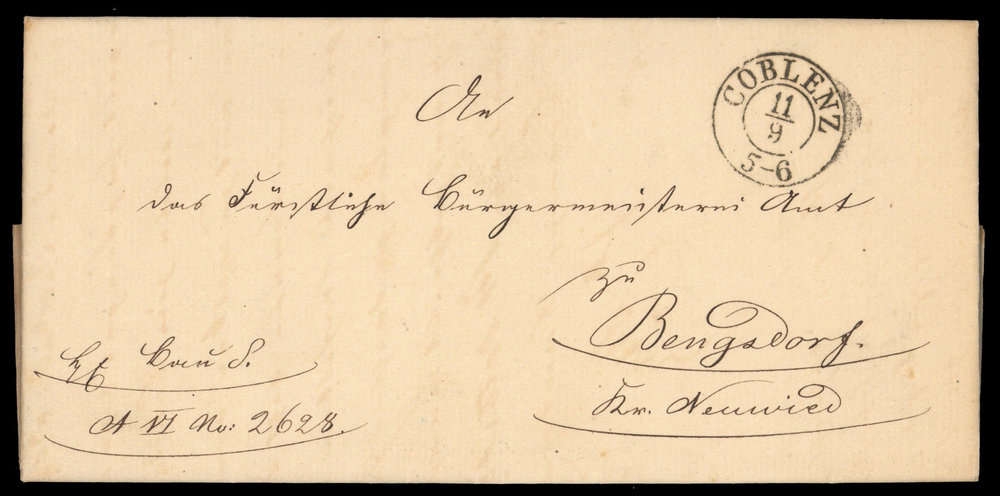 COBLENZ
11/9
5-6
An
das Fürstliche Bürgermeisterei Amt
zu
Bengsdorf.
Kr. Neuwied
Bau S.
A VI No: 2628.